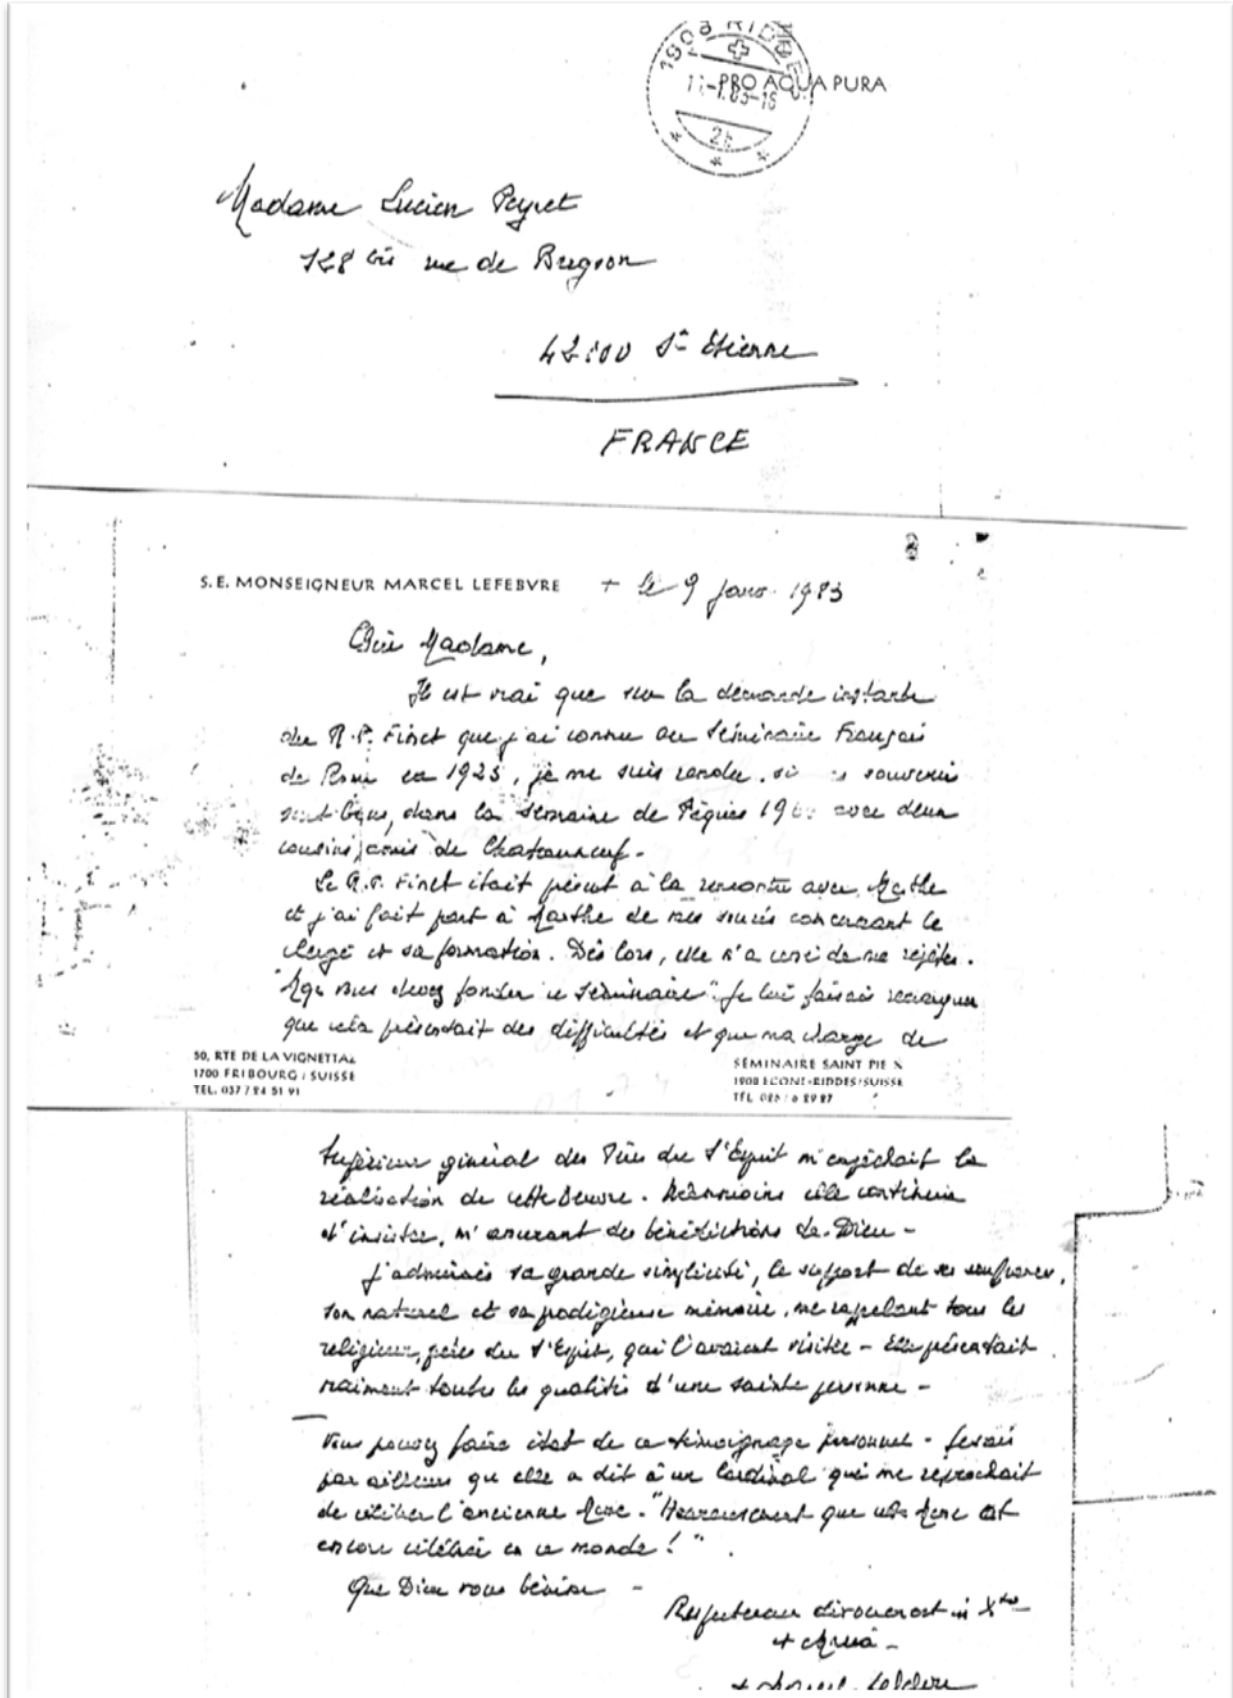 1908 RIDDES
PRO AQUA PURA
Madame Lucien Peyret
128 bis rue de
42100 St Etienne
FRANCE
S. E. MONSEIGNEUR MARCEL LEFEBVRE + le 9 janv. 1983
Chère Madame,
Il est vrai que sur la demande instante
du R.P. Finet que j'ai connu au Séminaire Français
de Rome en 1923, je me suis rendu, si souvenirs
sont bons, dans la semaine de Pâques 19 avec deux
cousins, amis de Chateauneuf.
Le R.P. Finet était présent à la rencontre avec Marthe
et j'ai fait part à Marthe de mes soucis concernant le
clergé et sa formation. Dès lors, elle n'a cessé de me répéter.
vous devez fonder ce séminaire". Je lui faisais remarquer
que cela présentait des difficultés et que ma charge de
50, RTE DE LA VIGNETTAZ
1700 FRIBOURG / SUISSE
TÉL. 037 / 24 51 91
SÉMINAIRE SAINT PIE X
1908 ECONE-RIDDES/SUISSE
TÉL.
Supérieur général des Pères du S'Esprit m'empêchait la
réalisation de cette oeuvre. Néanmoins elle continua
d'insister, m'assurant des bénédictions de Dieu -
J'admirais sa grande simplicité, le support de ses souffrances,
son naturel et sa prodigieuse mémoire, me rappelant tous les
religieux, pères du S'Esprit, qui l'avaient visitée - Elle présentait
vraiment toutes les qualités d'une sainte personne -
Vous pouvez faire état de ce témoignage personnel - Je sais
par ailleurs qu'elle a dit à un Cardinal qui me reprochait
de célébrer l'ancienne Messe - "Heureusement que cette Messe est
encore célébrée en ce monde !".
Que Dieu vous bénisse -
Respectueux dévouement in Xto
et Maria -
+ Marcel Lefebvre